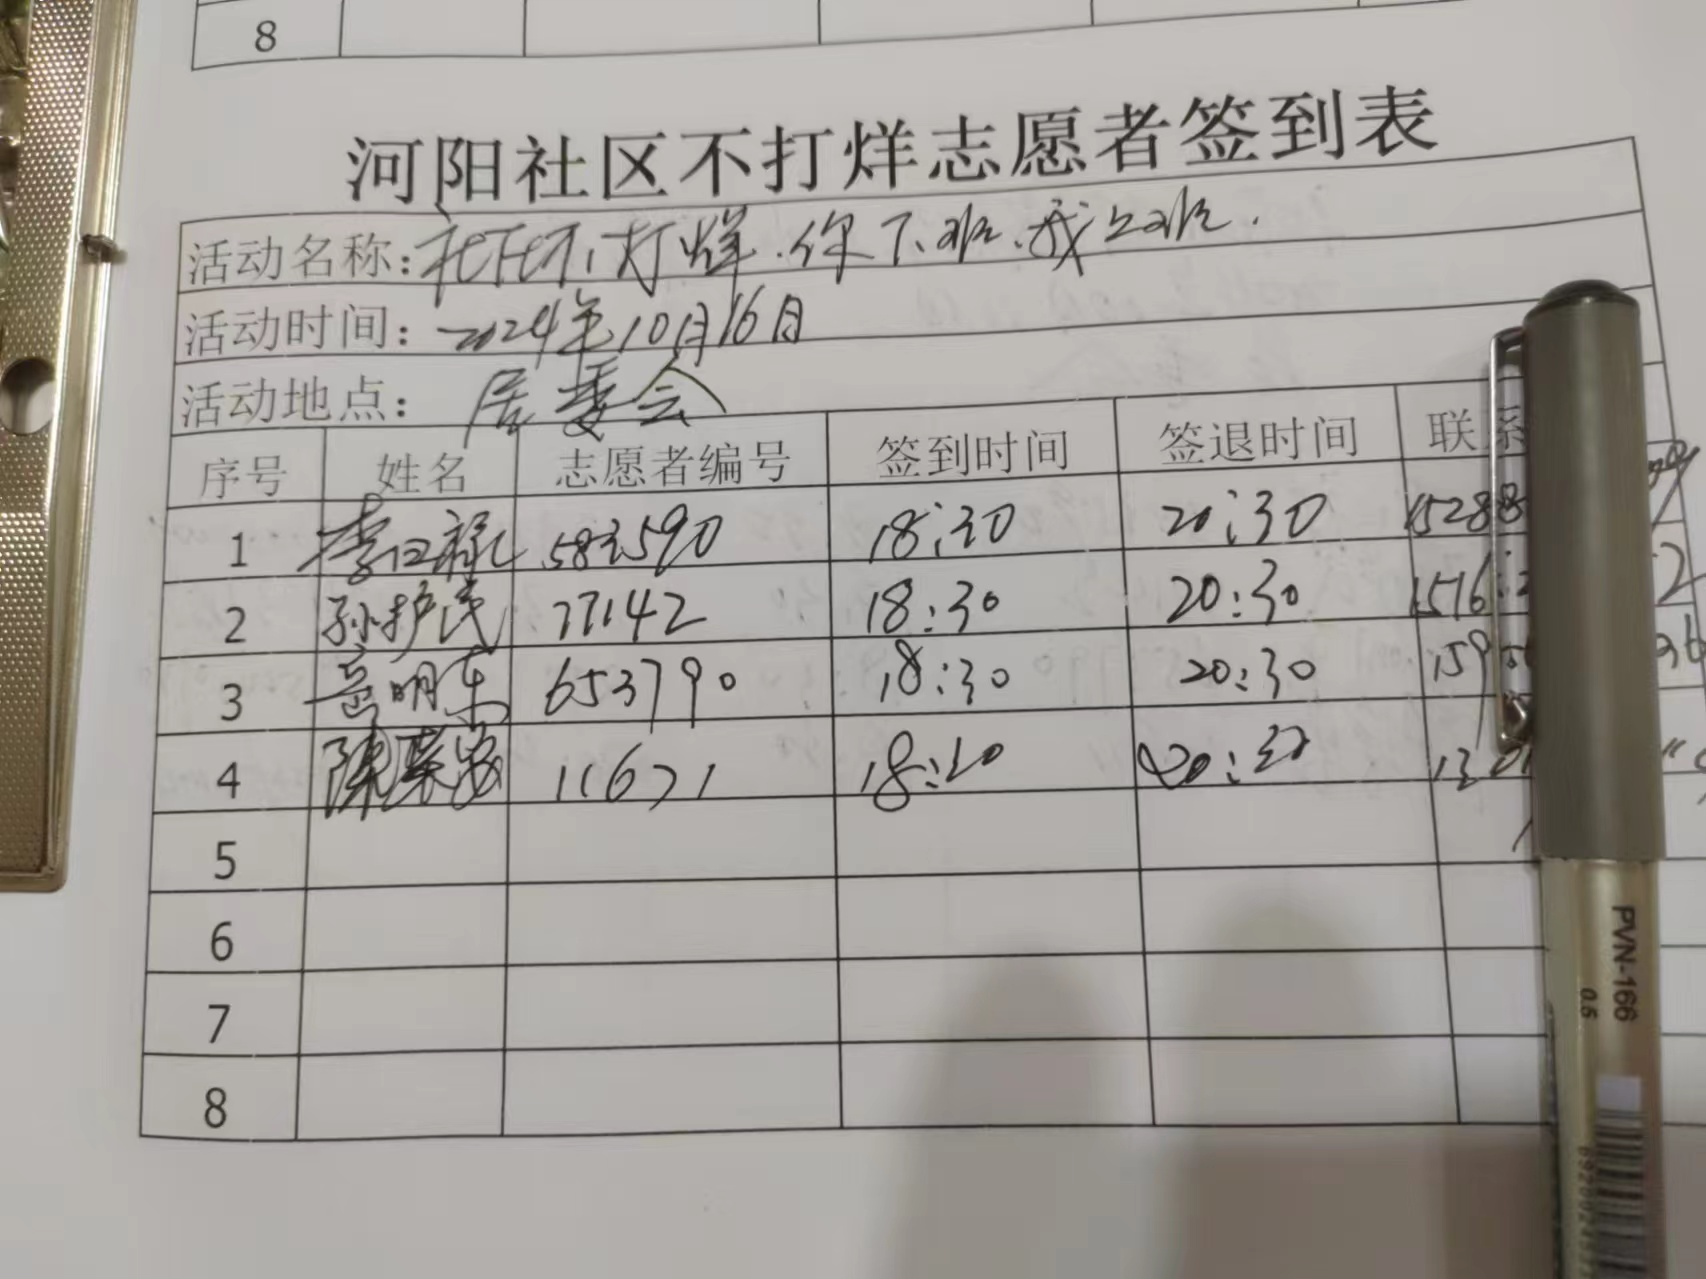 8
河阳社区不打烊志愿者签到表
活动名称:社区不打烊.你下班.我上班.
活动时间:2024年10月16日
活动地点: 居委会
序号 姓名 志愿者编号 签到时间 签退时间 联系
1 583590 18:30 20:30 15288
2 孙护民 77142 18:30 20:30 1516
3 岳明东 653790 18:30 20:30 159
4 陈荣安 11671 18:30 20:30
5
6
7
8
PVN-166
0.5